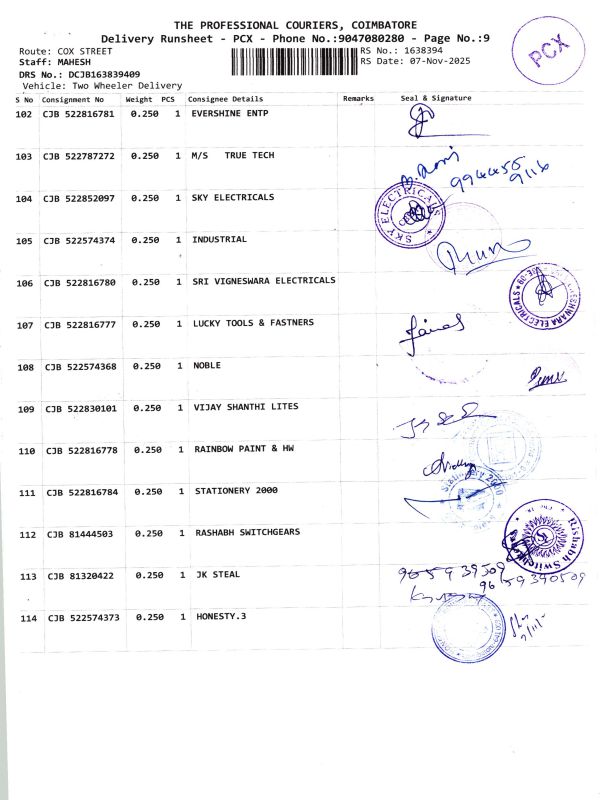 THE PROFESSIONAL COURIERS, COIMBATORE
Delivery Runsheet - PCX - Phone No.:9047080280 - Page No.:9
Route: COX STREET
RS No.: 1638394
PCX
Staff: MAHESH
RS Date: 07-Nov-2025
DRS No.: DCJB163839409
Vehicle: Two Wheeler Delivery
S No Consignment No Weight PCS Consignee Details Remarks Seal & Signature
102 CJB 522816781 0.250 1 EVERSHINE ENTP
103 CJB 522787272 0.250 1 M/S TRUE TECH
994455
9116
104 CJB 522852097 0.250 1 SKY ELECTRICALS
SKY ELECTRICALS
105 CJB 522574374 0.250 1 INDUSTRIAL
106 CJB 522816780 0.250 1 SRI VIGNESWARA ELECTRICALS
107 CJB 522816777 0.250 1 LUCKY TOOLS & FASTNERS
108 CJB 522574368 0.250 1 NOBLE
109 CJB 522830101 0.250 1 VIJAY SHANTHI LITES
110 CJB 522816778 0.250 1 RAINBOW PAINT & HW
111 CJB 522816784 0.250 1 STATIONERY 2000
Stationery 2000
112 CJB 81444503 0.250 1 RASHABH SWITCHGEARS
Rishabh Switch
113 CJB 81320422 0.250 1 JK STEAL
965939509
9659390509
114 CJB 522574373 0.250 1 HONESTY.3